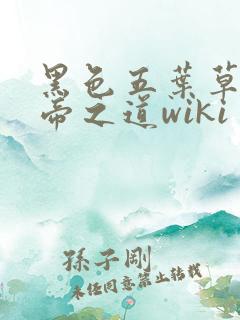 黑色五葉草
帝之道wiki
孫子剛
未經同意禁止轉載